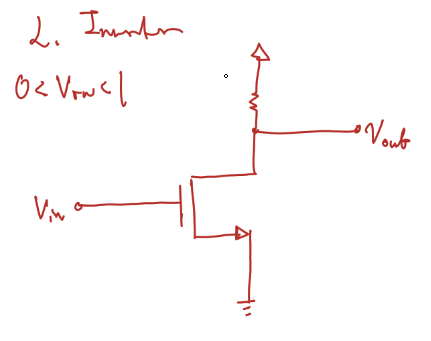 2. Inverter
0 < VIN < 1
Vout
Vin